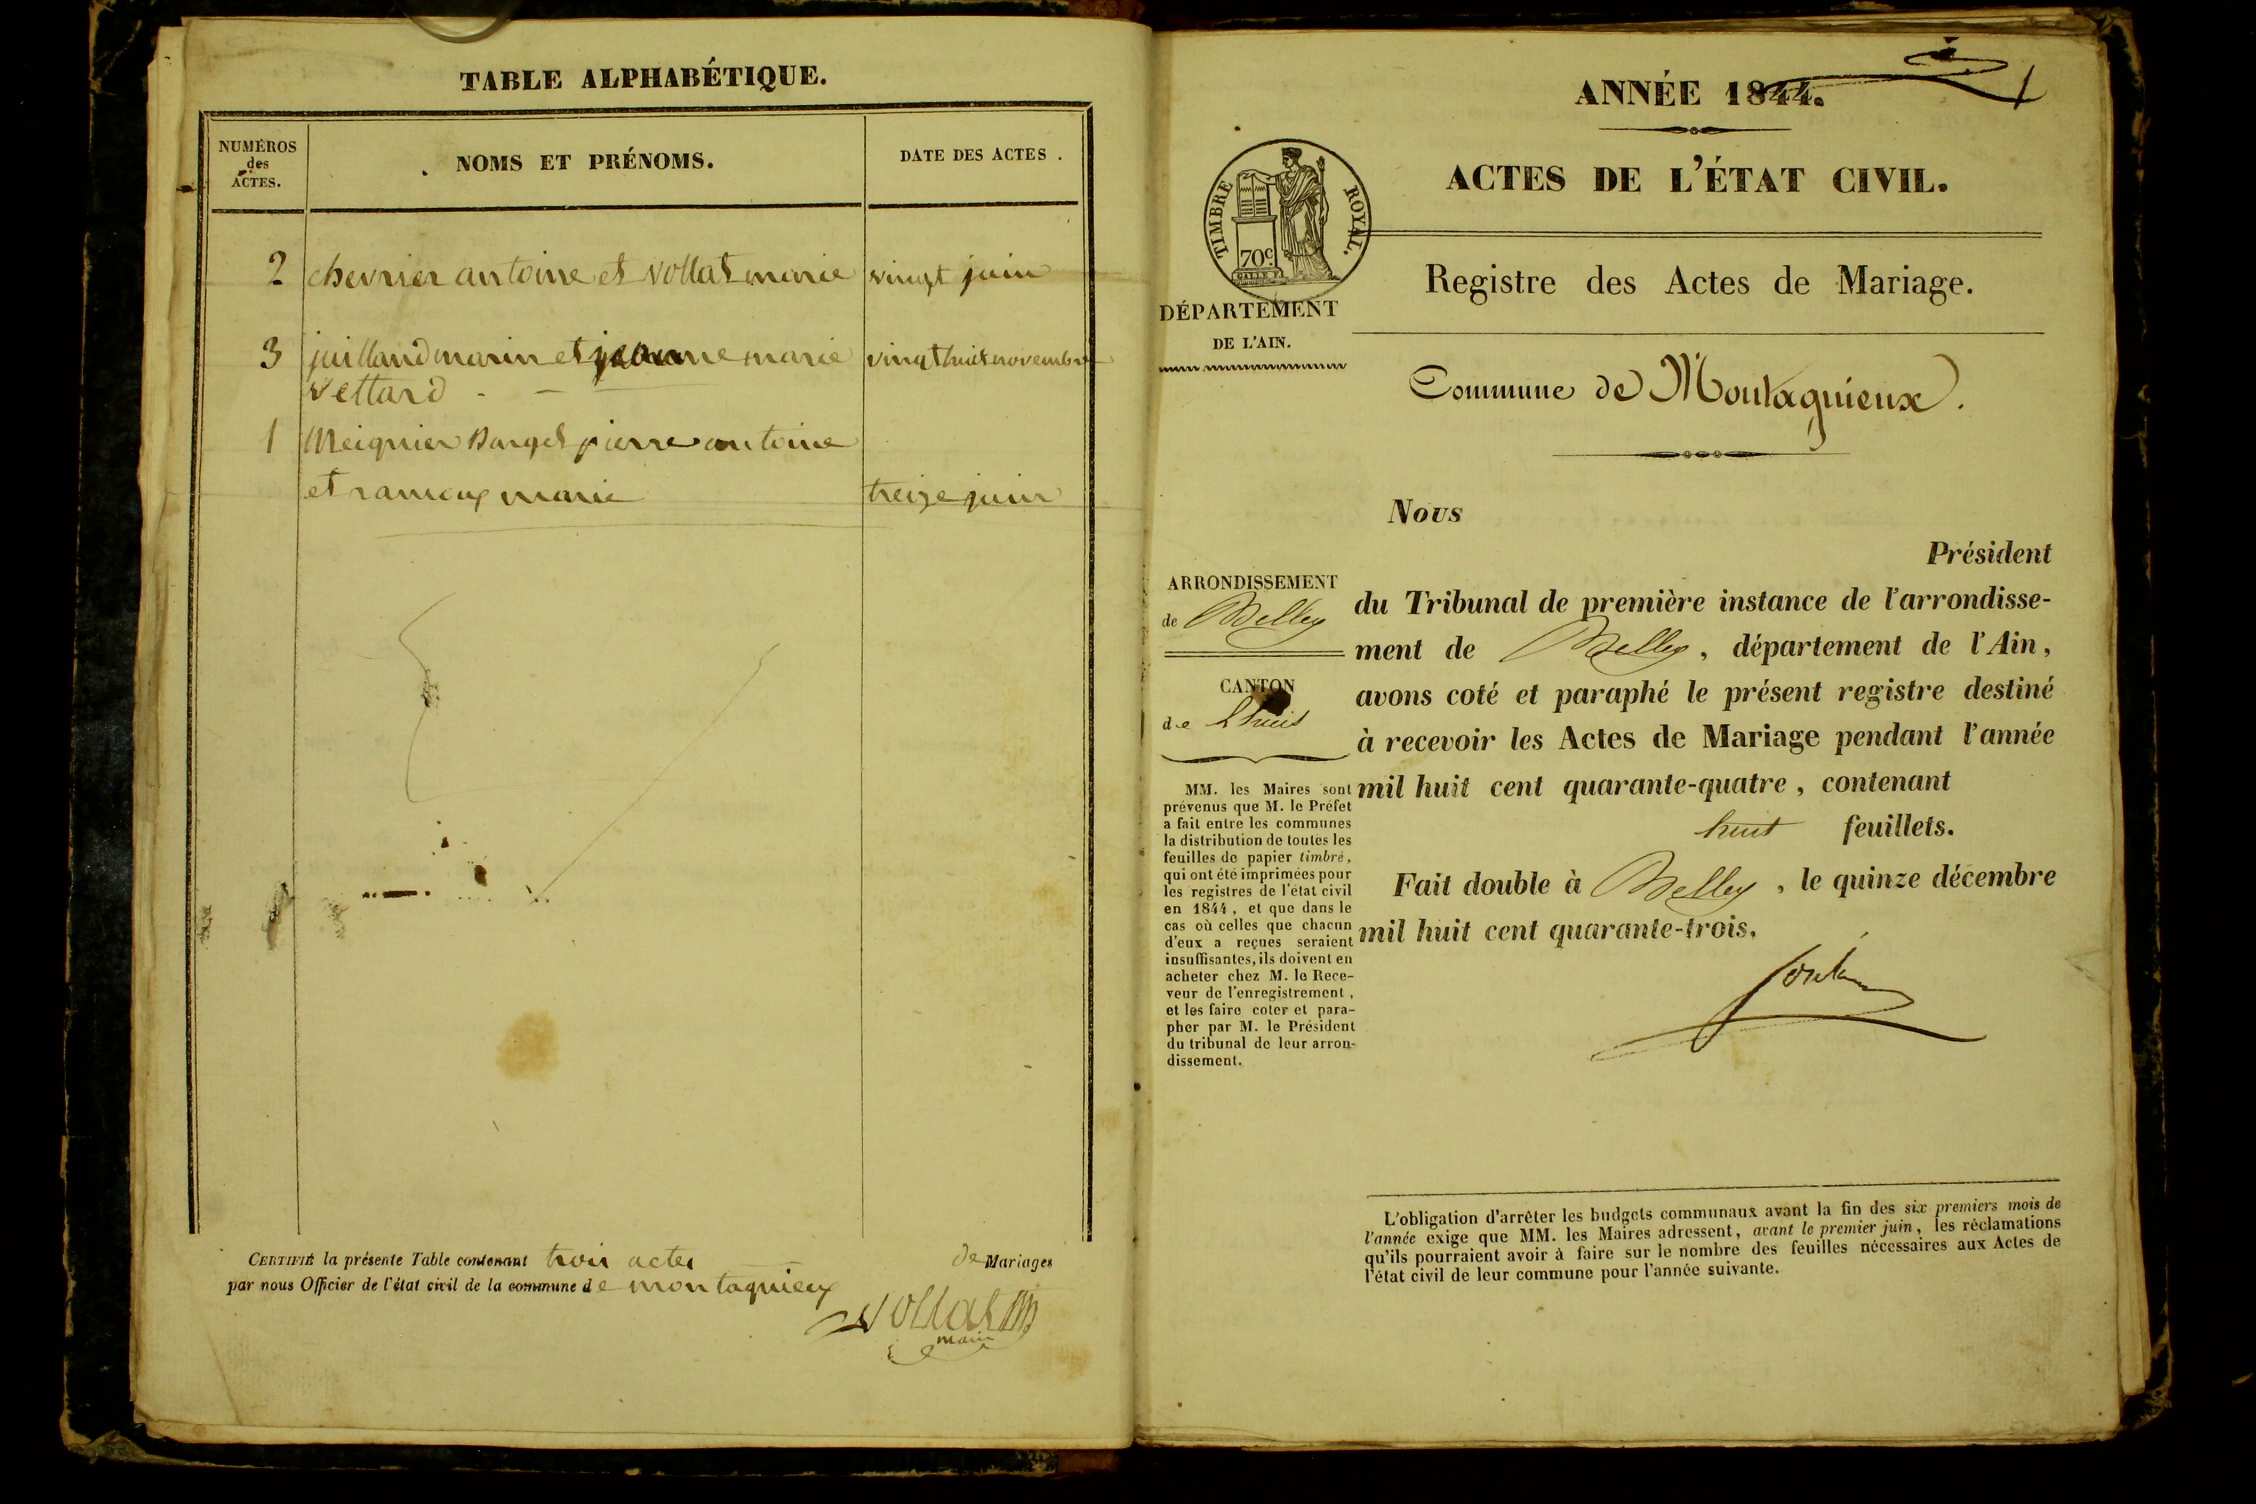 TABLE ALPHABÉTIQUE.
NUMÉROS
des
ACTES.
NOMS ET PRÉNOMS.
DATE DES ACTES.
2 chevrier antoine et vollat marie vingt juin
3 juilland marin et jeanne marie vingt huit novembre
vettard
1 Meignier Barget pierre antoine
et ramoux marie treize juin
CERTIFIÉ la présente Table contenant trois actes de Mariages
par nous Officier de l'état civil de la commune de montagnieux
vollat
maire
ANNÉE 1844.
1
ACTES DE L'ÉTAT CIVIL.
TIMBRE ROYAL.
70c.
Registre des Actes de Mariage.
DÉPARTEMENT
DE L'AIN.
Commune de Montagnieux.
Nous
Président
ARRONDISSEMENT
de Belley
du Tribunal de première instance de l'arrondisse-
ment de Belley, département de l'Ain,
CANTON
de Lhuis
avons coté et paraphé le présent registre destiné
à recevoir les Actes de Mariage pendant l'année
mil huit cent quarante-quatre, contenant
huit feuillets.
Fait double à Belley, le quinze décembre
mil huit cent quarante-trois.
MM. les Maires sont
prévenus que M. le Préfet
a fait entre les communes
la distribution de toutes les
feuilles de papier timbré,
qui ont été imprimées pour
les registres de l'état civil
en 1844, et que dans le
cas où celles que chacun
d'eux a reçues seraient
insuffisantes, ils doivent en
acheter chez M. le Rece-
veur de l'enregistrement,
et les faire coter et para-
pher par M. le Président
du tribunal de leur arron-
dissement.
L'obligation d'arrêter les budgets communaux avant la fin des six premiers mois de
l'année exige que MM. les Maires adressent, avant le premier juin, les réclamations
qu'ils pourraient avoir à faire sur le nombre des feuilles nécessaires aux Actes de
l'état civil de leur commune pour l'année suivante.